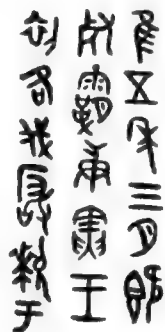 隹五年三月既
死霸庚寅王
初各伐于